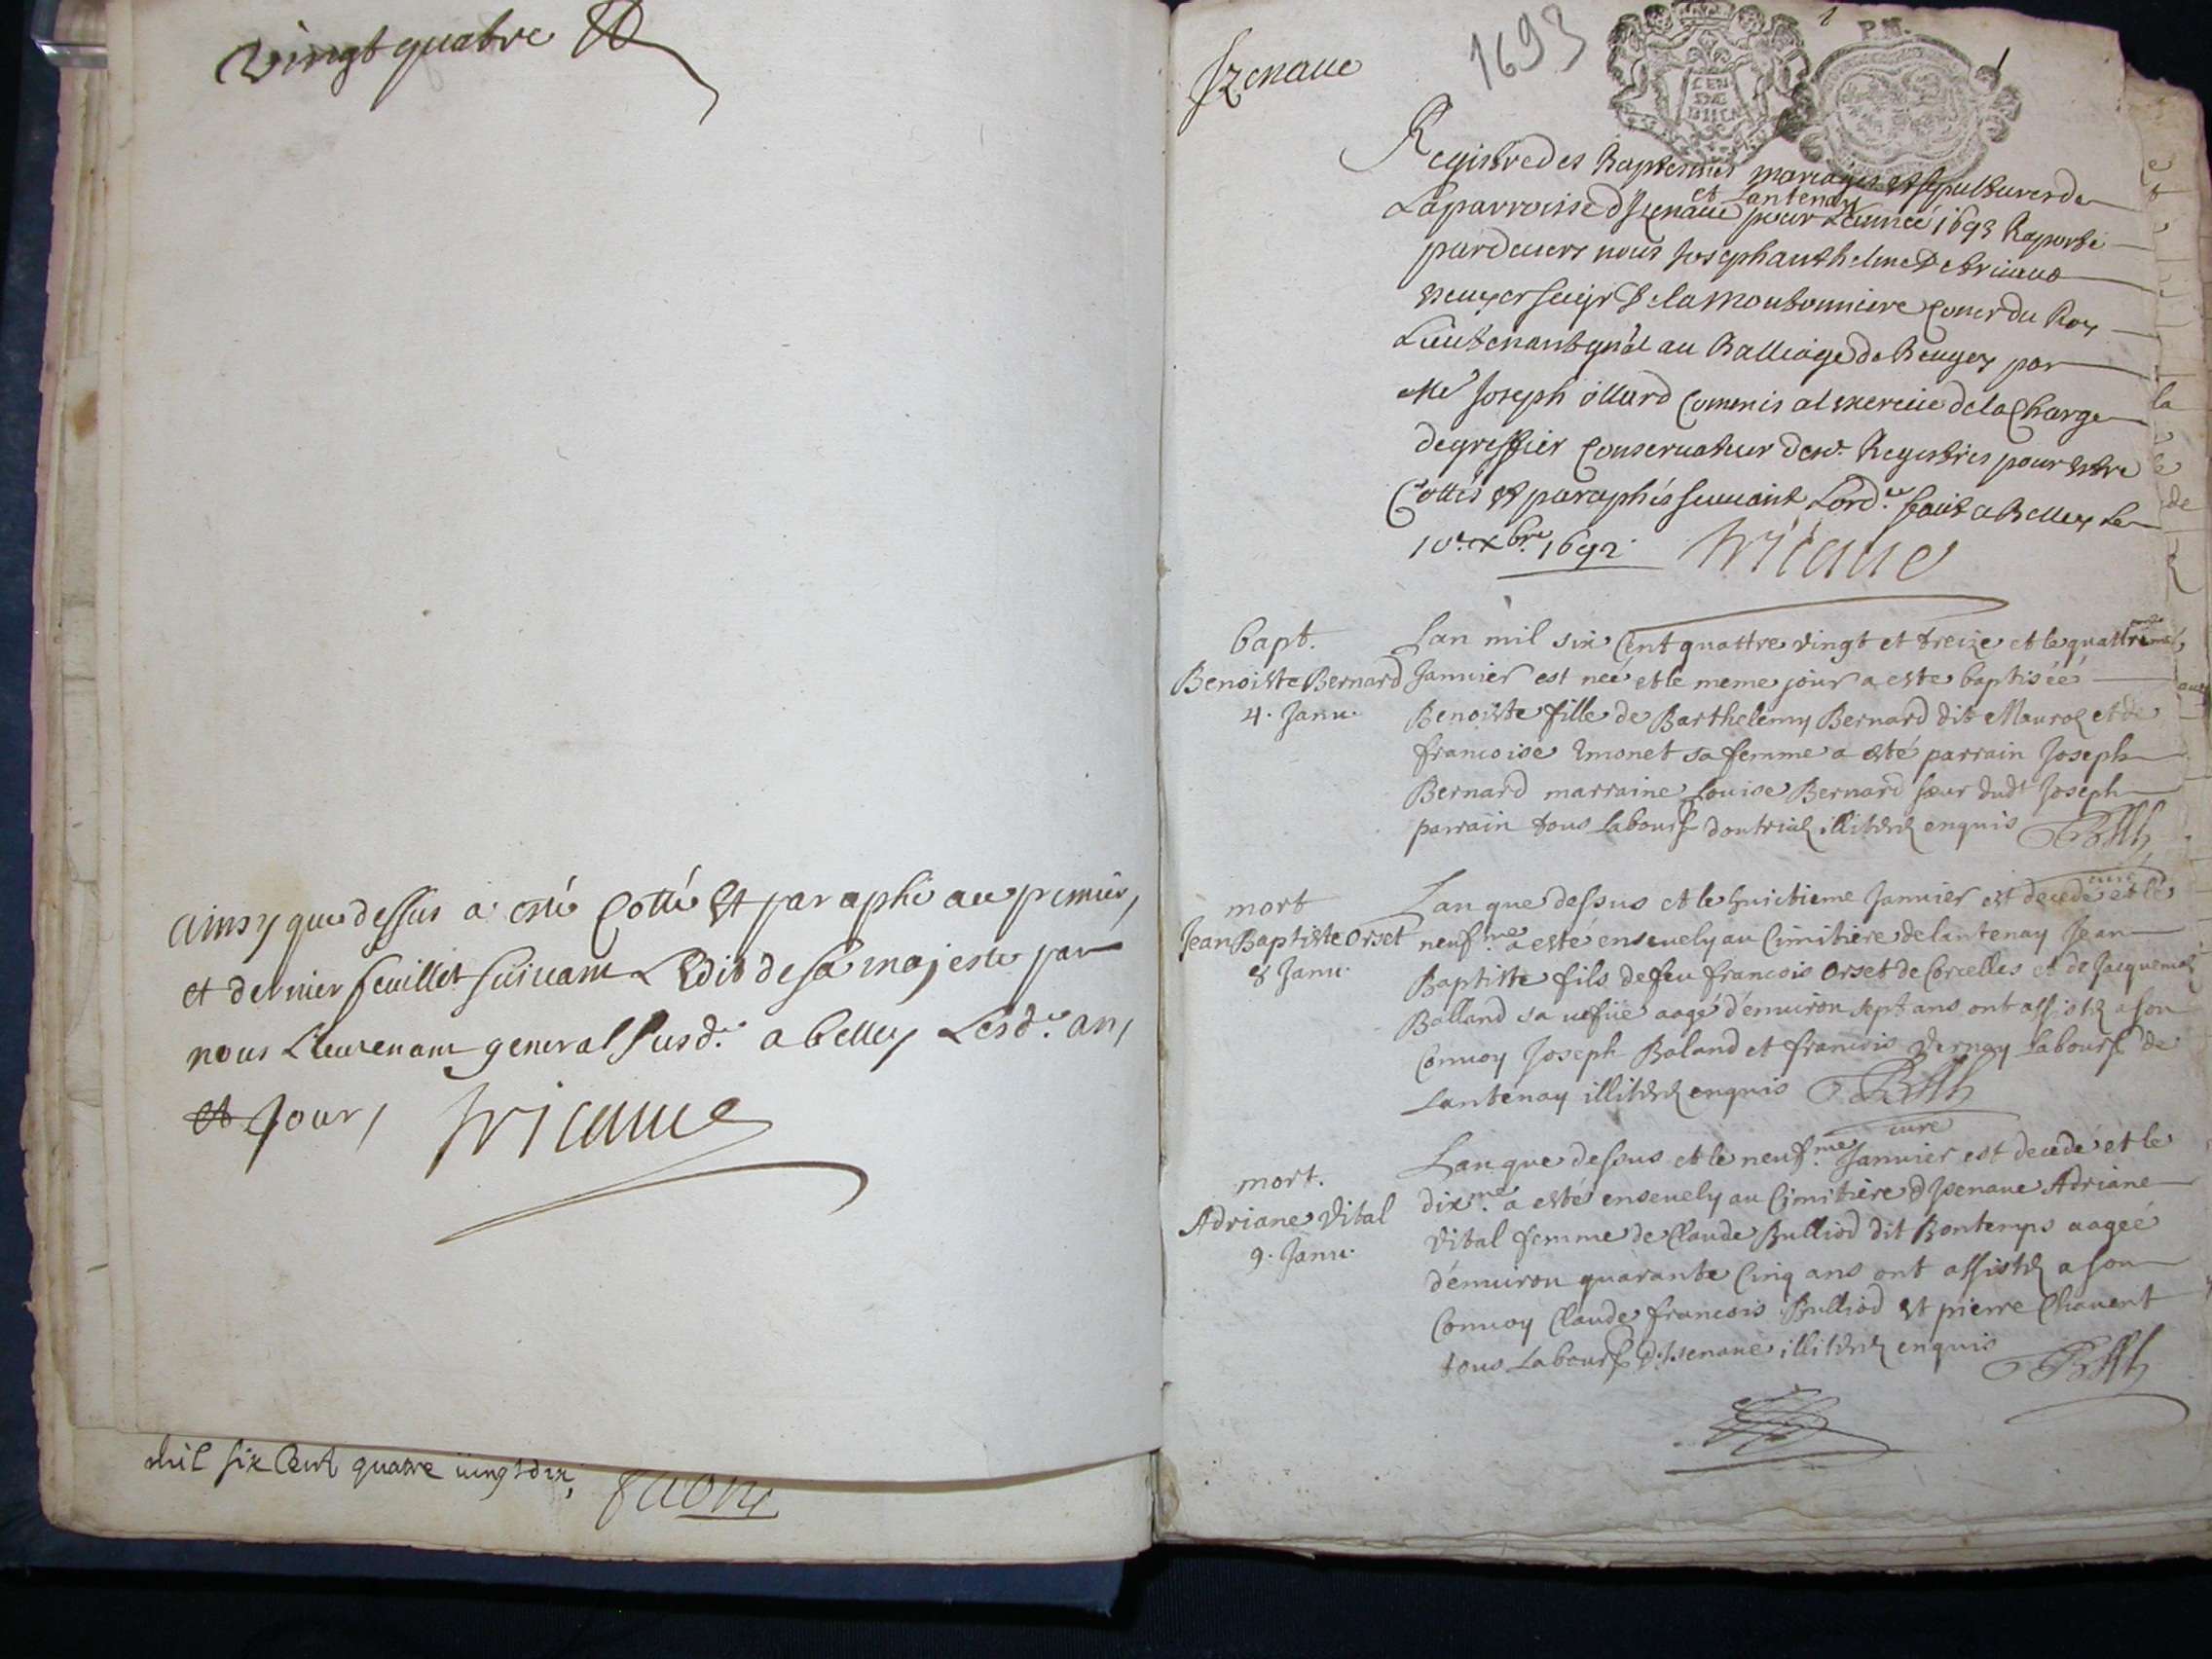 vingt quatre
ainsy que dessus a esté Cotté Et paraphé au premier,
et dernier feuillet suivant L'Edit de sa majesté par
nous Lieutenant general susd. a belley Lesd. an,
et Jour, tricaue
mil six Cent quatre vingt dix,
Izenaue
1693
P.M.
Registre des Baptesmes mariages et sepultures de
et Lantenay
La parroisse d'Izenaue pour Lannée 1693 Raporté
pardeuers nous Joseph anthelme De tricaud
Escuyer seigr De la Moutonniere Coner du Roy
Lieutenant gnâl au Balliage de Beugey par
Me Joseph ollard Commis a lexercice de la Charge
de greffier Conservateur desd. Registres pour Estre
Cottés et paraphés suiuant Lord. fait a Belley Le
10e. xbre. 1692 tricaue
bapt.
Benoiste Bernard
4. Janu.
Lan mil six Cent quattre vingt et treize et le quattrieme
Januier est neé et le meme jour a este baptiséé
Benoiste fille de Barthelemy Bernard dit Mauroz et de
francoise Emonet sa femme a esté parrain Joseph
Bernard marraine Louise Bernard sœur dudt Joseph
parrain tous labours illiterez enquis
curé
mort
Jean Baptiste Orset
8 Janu.
Lan que dessus et le huictieme Januier est decedé et le
neufme. a esté enseuely au Cimitiere de lantenay Jean
Baptiste fils de feu francois Orset de Corcelles et de Jacquemaz
Balland sa uefue aagé d'enuiron sept ans ont assistez a son
Conuoy Joseph Baland et francois Vernay labours de
Lantenay illiterez enquis
curé
mort.
Adriane Vital
9. Janu.
Lan que dessus et le neufme. Januier est decedé et le
dixme. a esté enseuely au Cimitiere d'Isenaue Adriane
Vital femme de Claude Bulliod dit Bontemps aageé
d'enuiron quarante Cinq ans ont assistez a son
Conuoy Claude francois Bulliod et pierre Chauent
tous Labours d'Isenaue illiterez enquis